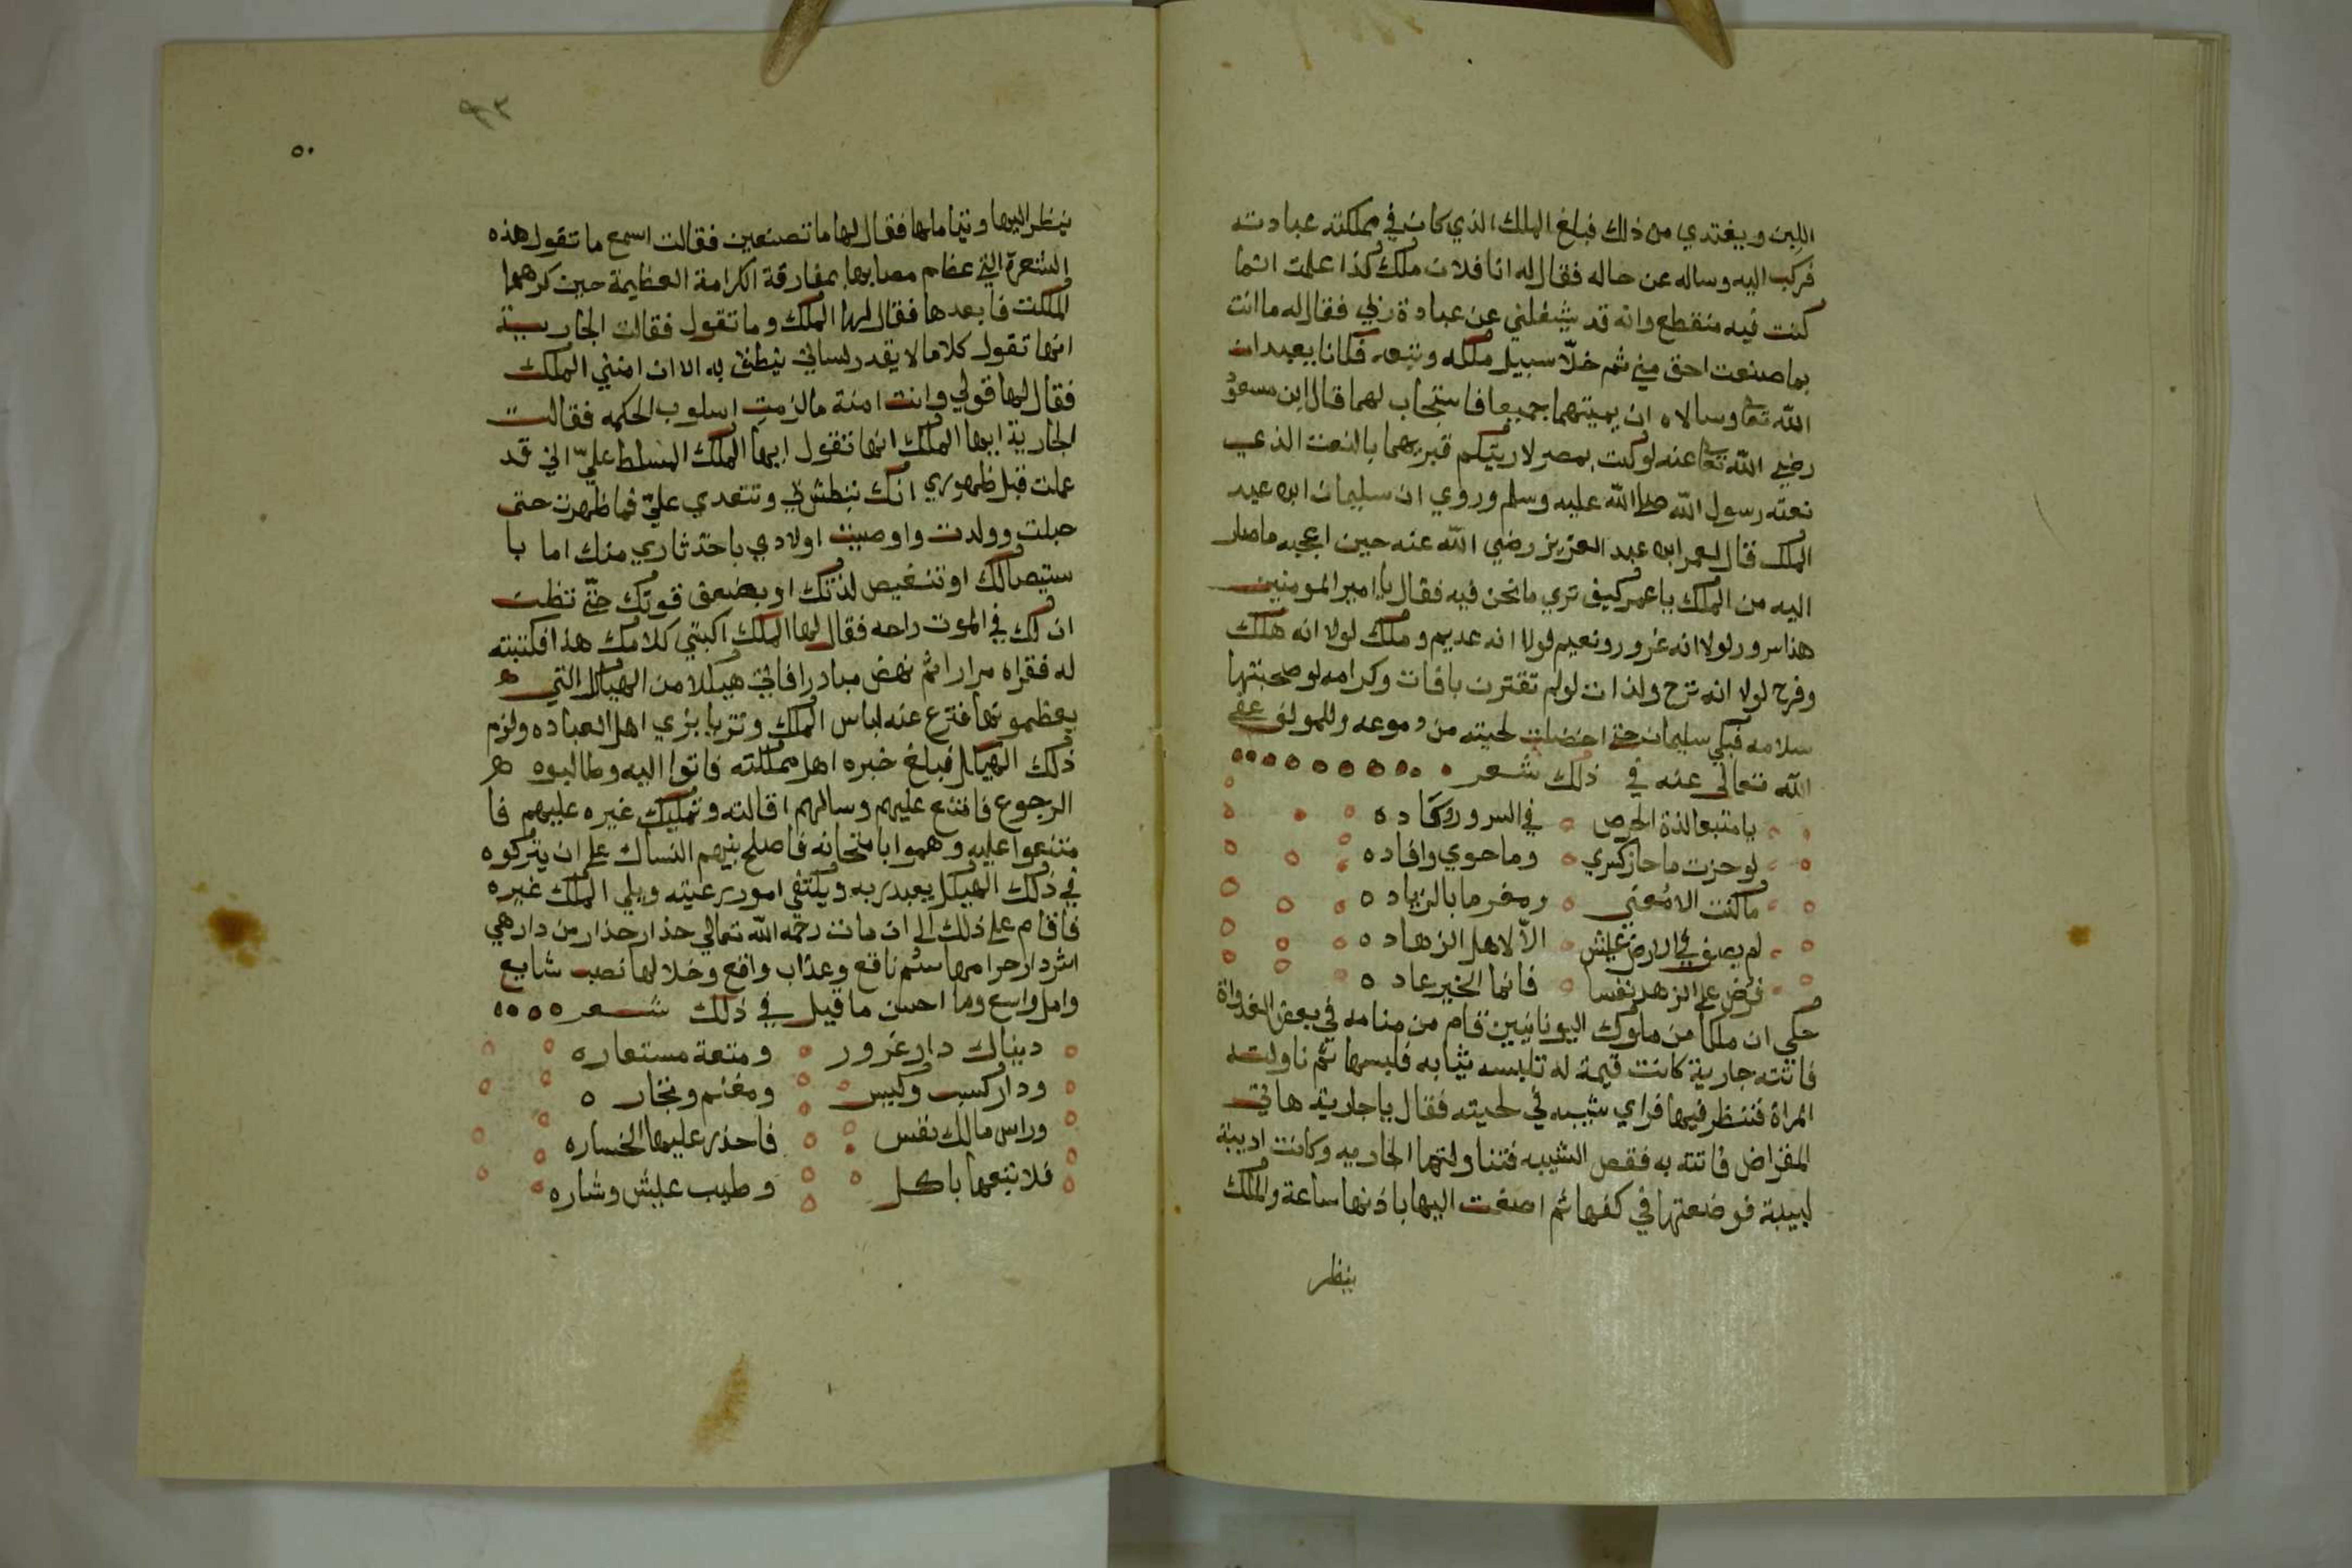 اللبن ويغتدي من ذلك فبلغ الملك الذي كان في مملكته عبادته
فركب اليه وساله عن حاله فقال له انا فلان ملك كذا علمت انما
كنت فيه منقطع وانه قد شغلني عن عبادة ربي فقال له ما انت
بما صنعت احق مني ثم خلّا سبيل ملكه وتبعه فكانا يعبدان
الله تعا وسالاه ان يميتهما جميعا فاستجاب لهما قال ابن مسعود
رضي الله تعا عنه لوكنت بمصر لاريتكم قبريهما بالنعت الذي
نعته رسول الله صلى الله عليه وسلم وروي ان سليمان ابن عبد
الملك قال لعمر ابن عبد العزيز رضي الله عنه حين اعجبه ماصار
اليه من الملك ياعمر كيف تري مانحن فيه فقال يا امير المومنين
هذا سرور لولا انه غرور ونعيم لولا انه عديم وملك لولا انه هلك
وفرح لولا انه ترح ولذات لولم تقترن بافات وكرامه لو صحبتها
سلامه فبكي سليمان حتى اخضلت لحيته من دموعه وللمولف عفي
الله تعالى عنه في ذلك شعر
يا متبعا لذة الحرص في السرور وكاده
لوحزت ما حاز كسري وما حوي وافاده
ماكنت الا مُعني ومغرما بالزياده
لم يصف في الارض عيش الاّ لاهل الزهاده
فرض على الزهد نفسا فانما الخير عاده
حكي ان ملكا من ملوك اليونانيين قام من منامه في بعض الغدواة
فاتته جارية كانت قيمة له تلبسه ثيابه فلبسها ثم ناولته
المراة فنظر فيها فراي شيبه في لحيته فقال يا جارية هاتي
المقراض فاتته به فقص الشيبه فتناولتها الجاريه وكانت اديبة
لبيبة فوضعتها في كفها ثم اصغت اليها باذنها ساعة والملك
ينظر
٩٣
٥٠
ينظر اليها ويتاملها فقال لها ما تصنعين فقالت اسمع ما تقول هذه
الشعرة التي عظم مصابها بمفارقة الكرامة العظيمة حين كرهها
الملك فابعدها فقال لها الملك وما تقول فقالت الجارية
انها تقول كلاما لا يقدر لساني ينطق به الا ان امنني الملك
فقال لها قولي وانت امنة مالزمتِ اسلوب الحكمه فقالت
الجارية ايها الملك انها تقول ايها الملك المسلط عليّ اني قد
علمت قبل ظهوري انك تبطش بي وتتعدي عليّ فما ظهرت حتى
حبلت وولدت واوصيت اولادي باخذ ثاري منك اما با
ستيصالك اوتنغيص لذتك او بضعف قوتك حتّى تظن
ان لك في الموت راحه فقال لها الملك اكبتي كلامك هذا فكتبته
له فقراه مرارا ثم نهض مبادرا فاتي هيكلا من الهياكل التي
يعظمونها فنزع عنه لباس الملك وتزيا بزي اهل العباده ولزم
ذلك الهيكل فبلغ خبره اهل مملكته فاتوا اليه وطالبوه
الرجوع فامتنع عليهم وسالهم اقالته وتمليك غيره عليهم فا
متنعوا عليه وهموا بامتحانه فاصلح بينهم النساك على ان يتركوه
في ذلك الهيكل يعبد ربه ويكتفي امور رعيته ويلي الملك غيره
فاقام على ذلك الى ان مات رحمه الله تعالي حذار حذار من دار هي
اشر دار حرامها سُم ناقع وعذاب واقع وحلالها نصب شايع
وامل واسع وما احسن ما قيل في ذلك شعر
دنياك دار غرور ومتعة مستعاره
ودار كسب وكيس ومغنم وتجاره
وراس مالك نفس فاحذر عليها الخساره
فلا تبعها باكل وطيب عيش وشاره